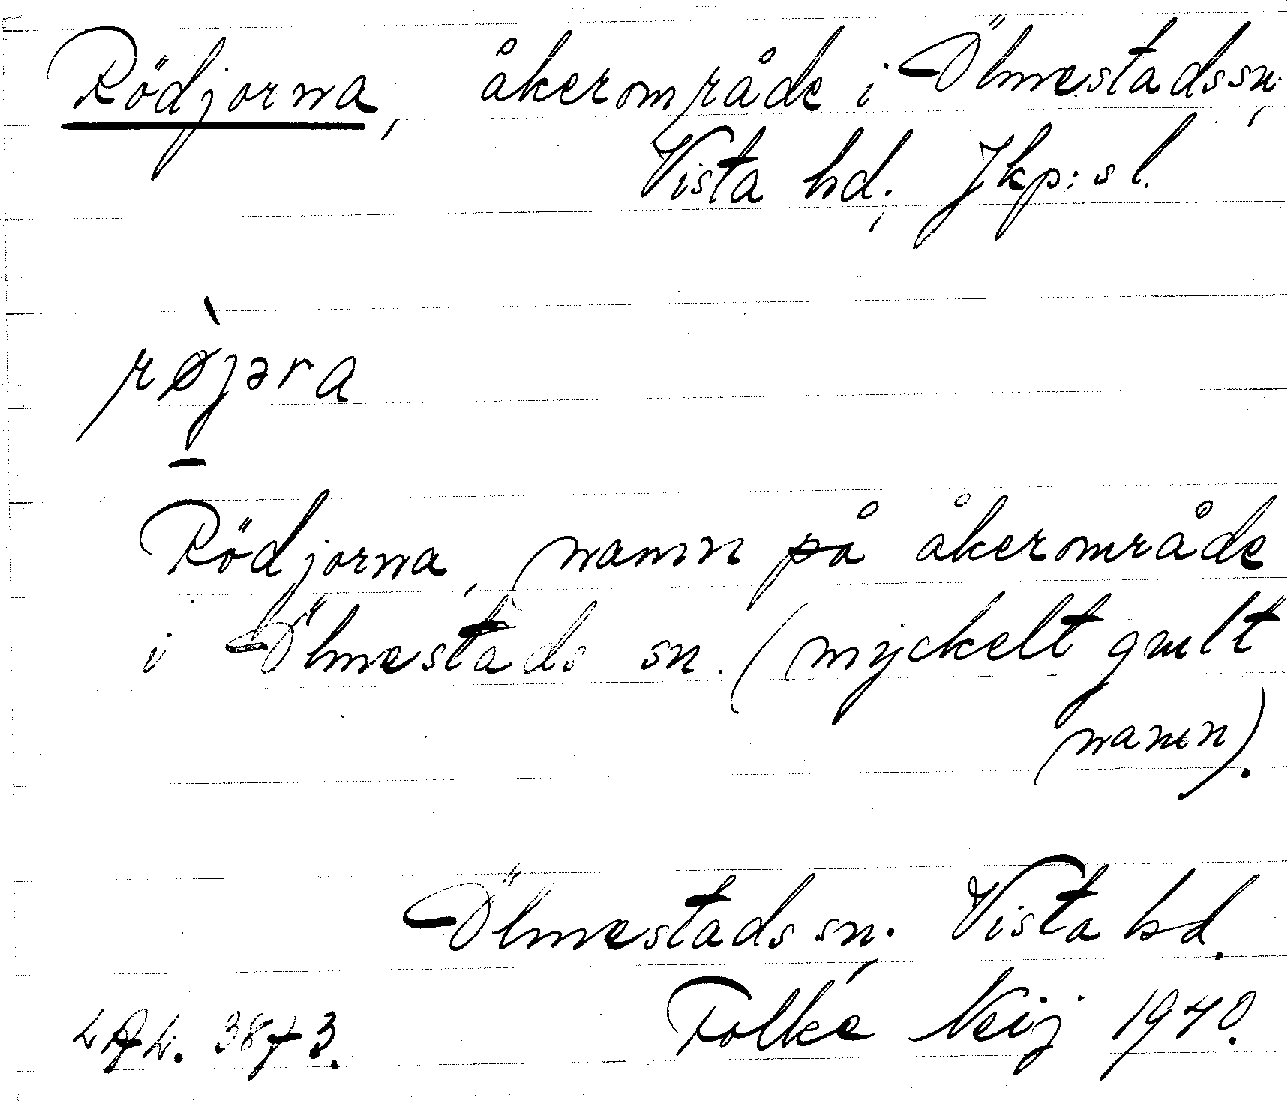 Rödjorna, åkerområde i Ölmestads sn,
Vista hd, Jkp:s l.
røjəra
Rödjorna, namn på åkerområde
i Ölmestads sn. (mycket gult
namn).
Ölmestads sn, Vista hd.
Folke Neij 1940.
3873.